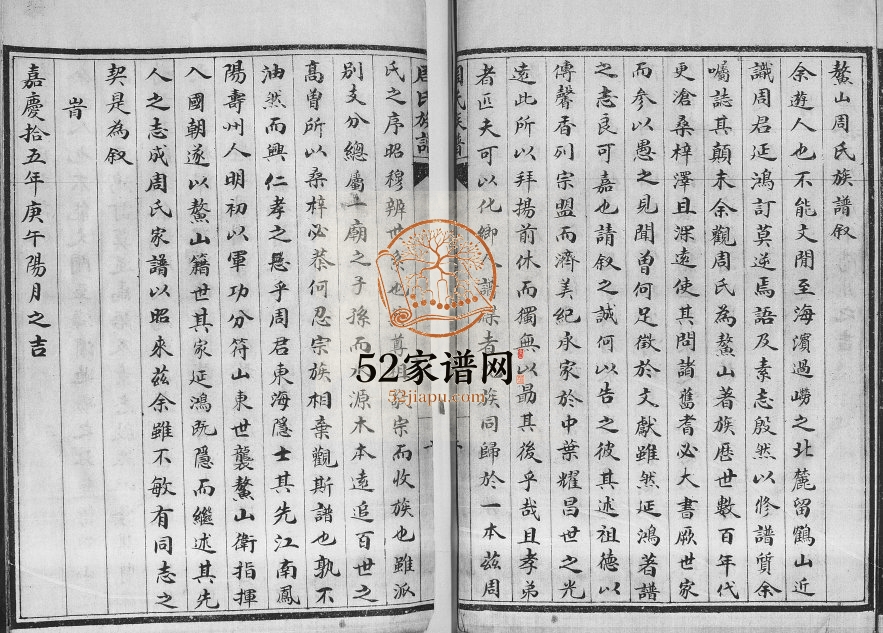 鰲山周氏族譜叙
余遊人也不能文閒至海濱過嶗之北麓留鶴山近
識周君延鴻訂莫逆焉語及素志殷然以修譜質余
囑誌其顛末余觀周氏為鰲山著族歷世數百年代
更滄桑梓澤且深遠使其問諸舊耆必大書厥世家
而参以愚之見聞曽何足徵於文獻雖然延鴻著譜
之志良可嘉也請叙之誠何以告之彼其述祖德以
傳馨香列宗盟而濟美紀永家於中葉耀昌世之光
逺此所以拜揚前休而獨無以勗其後乎哉且孝弟
者匹夫可以化鄉譜者族同歸於一本兹周
周氏族譜
周氏族譜
氏之序昭穆辨世系也尊祖宗而收族也雖派
别支分總屬一廟之子孫而水源木本遠追百世之
高曽所以桑梓必恭何忍宗族相棄觀斯譜也孰不
油然而興仁孝之思乎周君東海隱士其先江南鳳
陽壽州人明初以軍功分符山東世襲鰲山衛指揮
入國朝遂以鰲山籍世其家延鴻既隱而繼述其先
人之志成周氏家譜以昭來兹余雖不敏有同志之
契是為叙
旹
嘉慶拾五年庚午陽月之吉
52家谱网
52jiapu.com